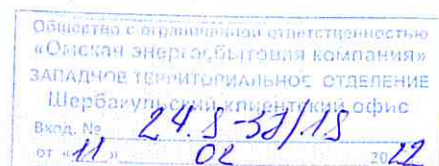 Общество с ограниченной ответственностью
«Омская энергосбытовая компания»
ЗАПАДНОЕ ТЕРРИТОРИАЛЬНОЕ ОТДЕЛЕНИЕ
Шербакульский клиентский офис
Вход. № 24.8-37/18
от «11» 02 2022